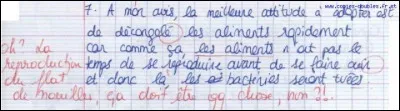 www.copies-doubles.fr.st
7. A mon avis, la meilleure attitude à adopter est
de décongelé les aliments rapidement
car comme ça, les aliments n'ont pas le
temps de se reproduire avant de se faire cuir
et donc là les bactéries seront tuées
oh? La
reproduction
du plat
de nouilles, ça doit être qq chose, non ?!.